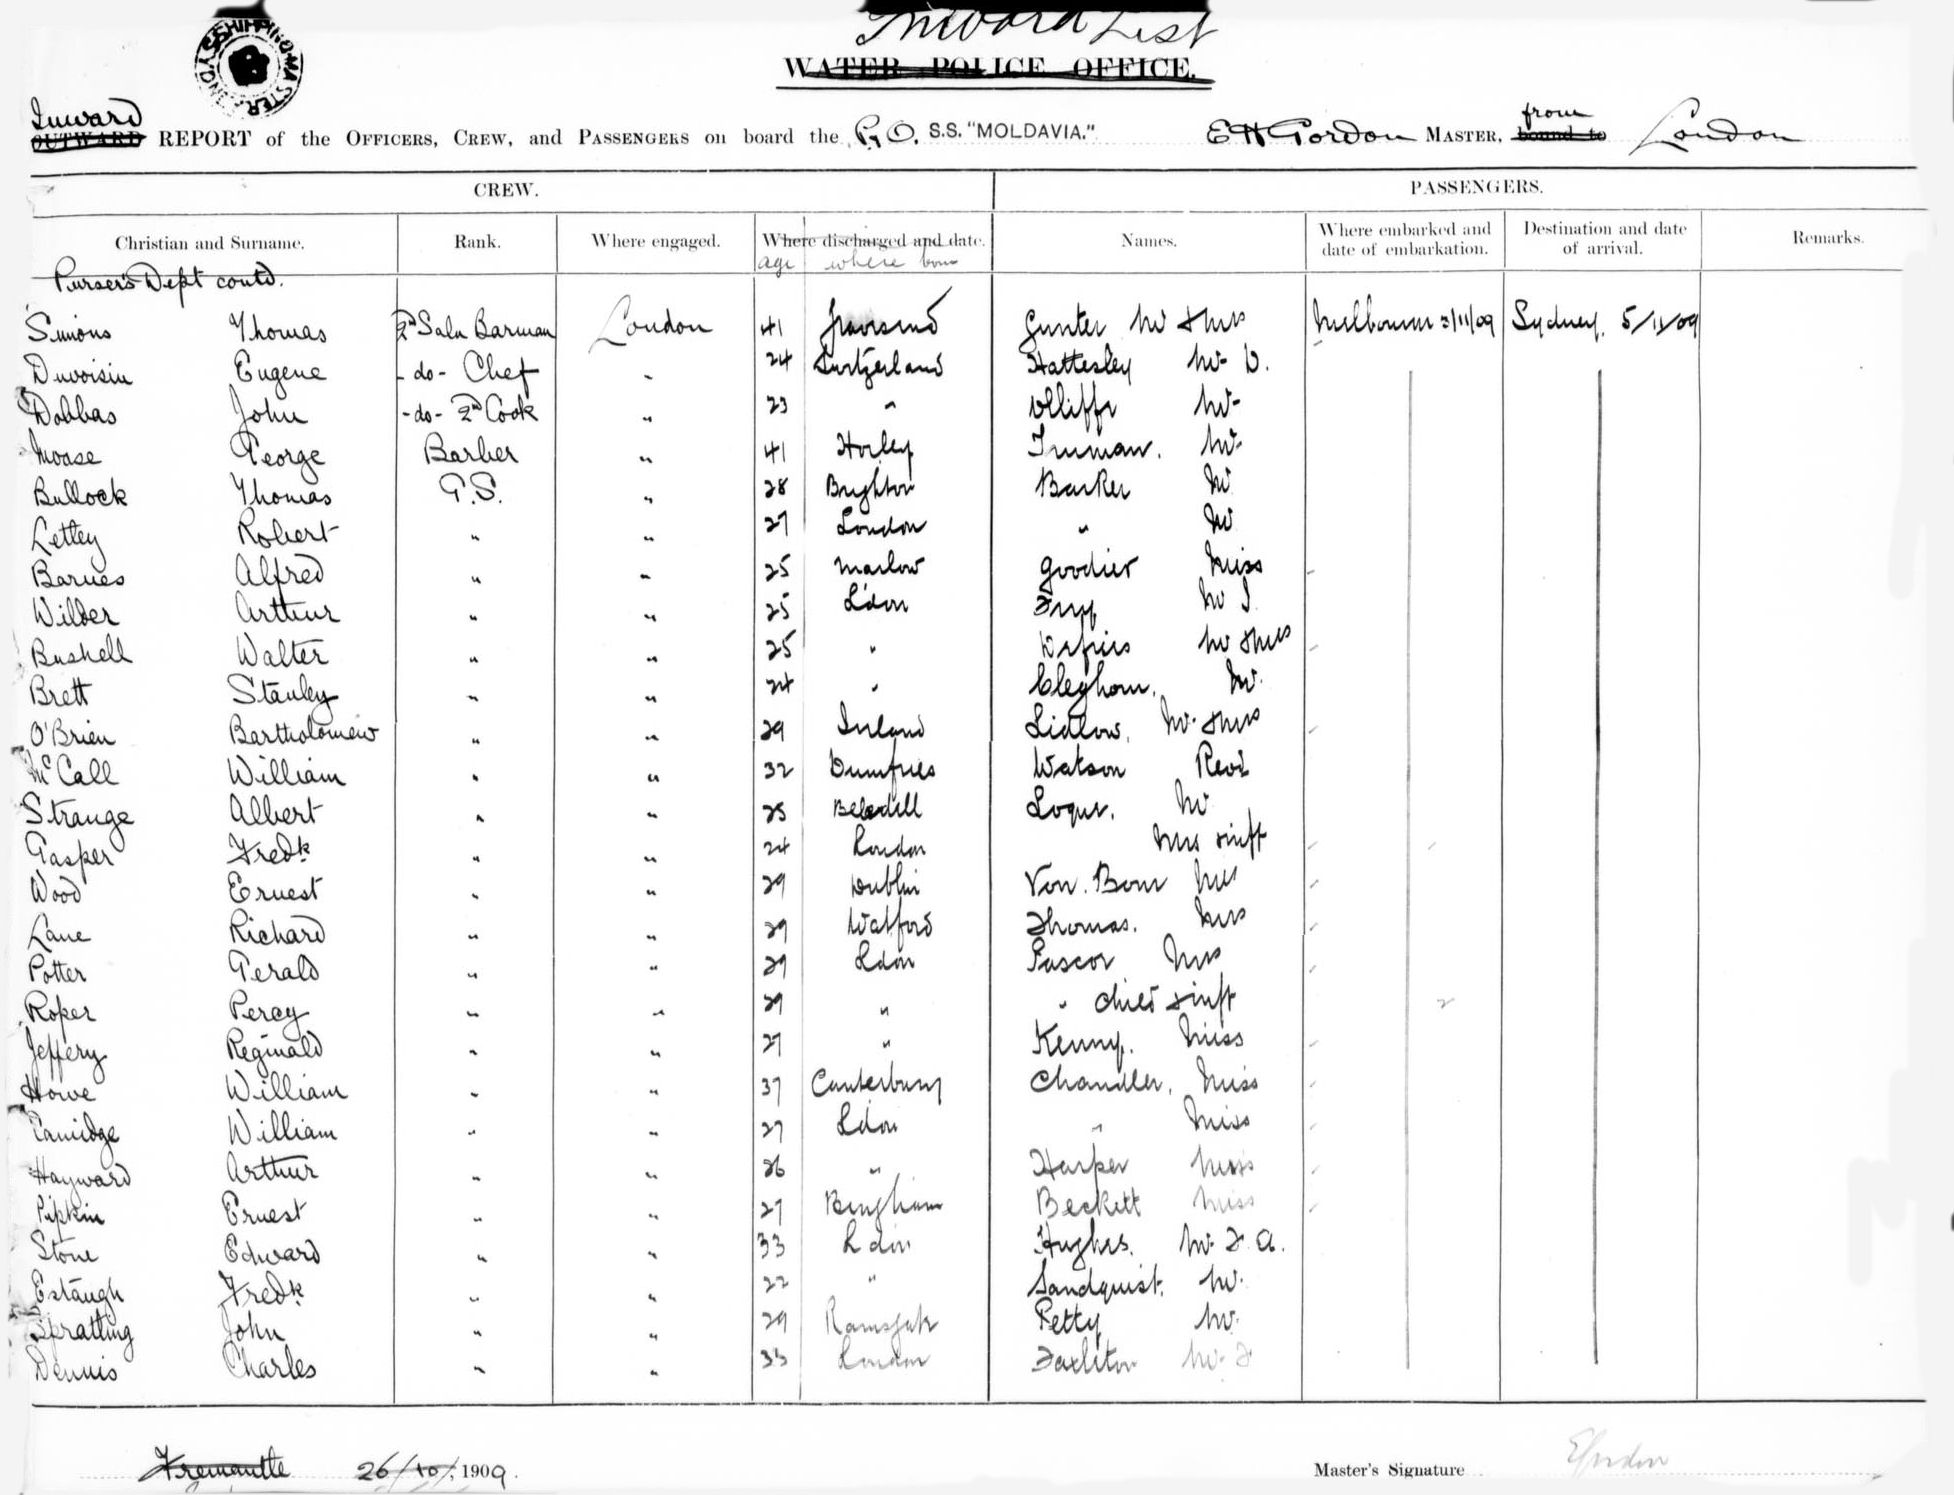 Inward List
WATER POLICE OFFICE.
SHIPPING MASTER SYDNEY
Inward
OUTWARD REPORT of the OFFICERS, CREW, and PASSENGERS on board the P&O. S.S. "MOLDAVIA." E H Gordon MASTER, from bound to London
CREW. PASSENGERS.
Christian and Surname. Rank. Where engaged. Where discharged and date. Names. Where embarked and date of embarkation. Destination and date of arrival. Remarks.
age where born
Purser's Dept contd.
Simons Thomas 2nd Saln Barman London 41 Gravesend Gunter Mr & Mrs Melbourne 3/11/09 Sydney 5/11/09
Duvoisin Eugene -do- Chef " 24 Switzerland Hattesley Mr D.
Dobbas John -do- 2nd Cook " 23 " Olliffe Mr
Moase George Barber " 41 Horley Truman. Mr
Bullock Thomas G.S. " 28 Brighton Barker Mr
Lettey Robert " " 27 London " Mr
Barnes Alfred " " 25 Marlow Goodier Miss
Wilder Arthur " " 25 Ldon Fry Mr J.
Bushell Walter " " 25 " Defries Mr & Mrs
Brett Stanley " " 24 " Cleghorn. Mr.
O'Brien Bartholomew " " 29 Ireland Lidlow. Mr & Mrs
McCall William " " 32 Dumfries Watson Revd
Strange Albert " " 25 Loque. Mr
Gasper Fredk " " 24 London Mrs & inft
Wood Ernest " " 29 Dublin Von. Bom Mrs
Lane Richard " " 29 Watford Thomas. Mrs
Potter Gerald " " 29 Ldon Pascoe Mrs
Roper Percy " " 29 " " child & inft
Jeffery Reginald " " 27 " Kenny. Miss
Howe William " " 37 Canterbury Chandler. Miss
William " " 27 Ldon " Miss
Hayward Arthur " " 26 " Harper Miss
Pipkin Ernest " " 27 Bingham Beckett Miss
Stone Edward " " 33 Ldon Hughes. Mr F. A.
Estaugh Fredk " " 22 " Sandquist. Mr.
Spratling John " " 29 Ramsgate Petty Mr.
Dennis Charles " " 33 London Mr F
Fremantle 26/10/, 1909.
Master's Signature EGordon